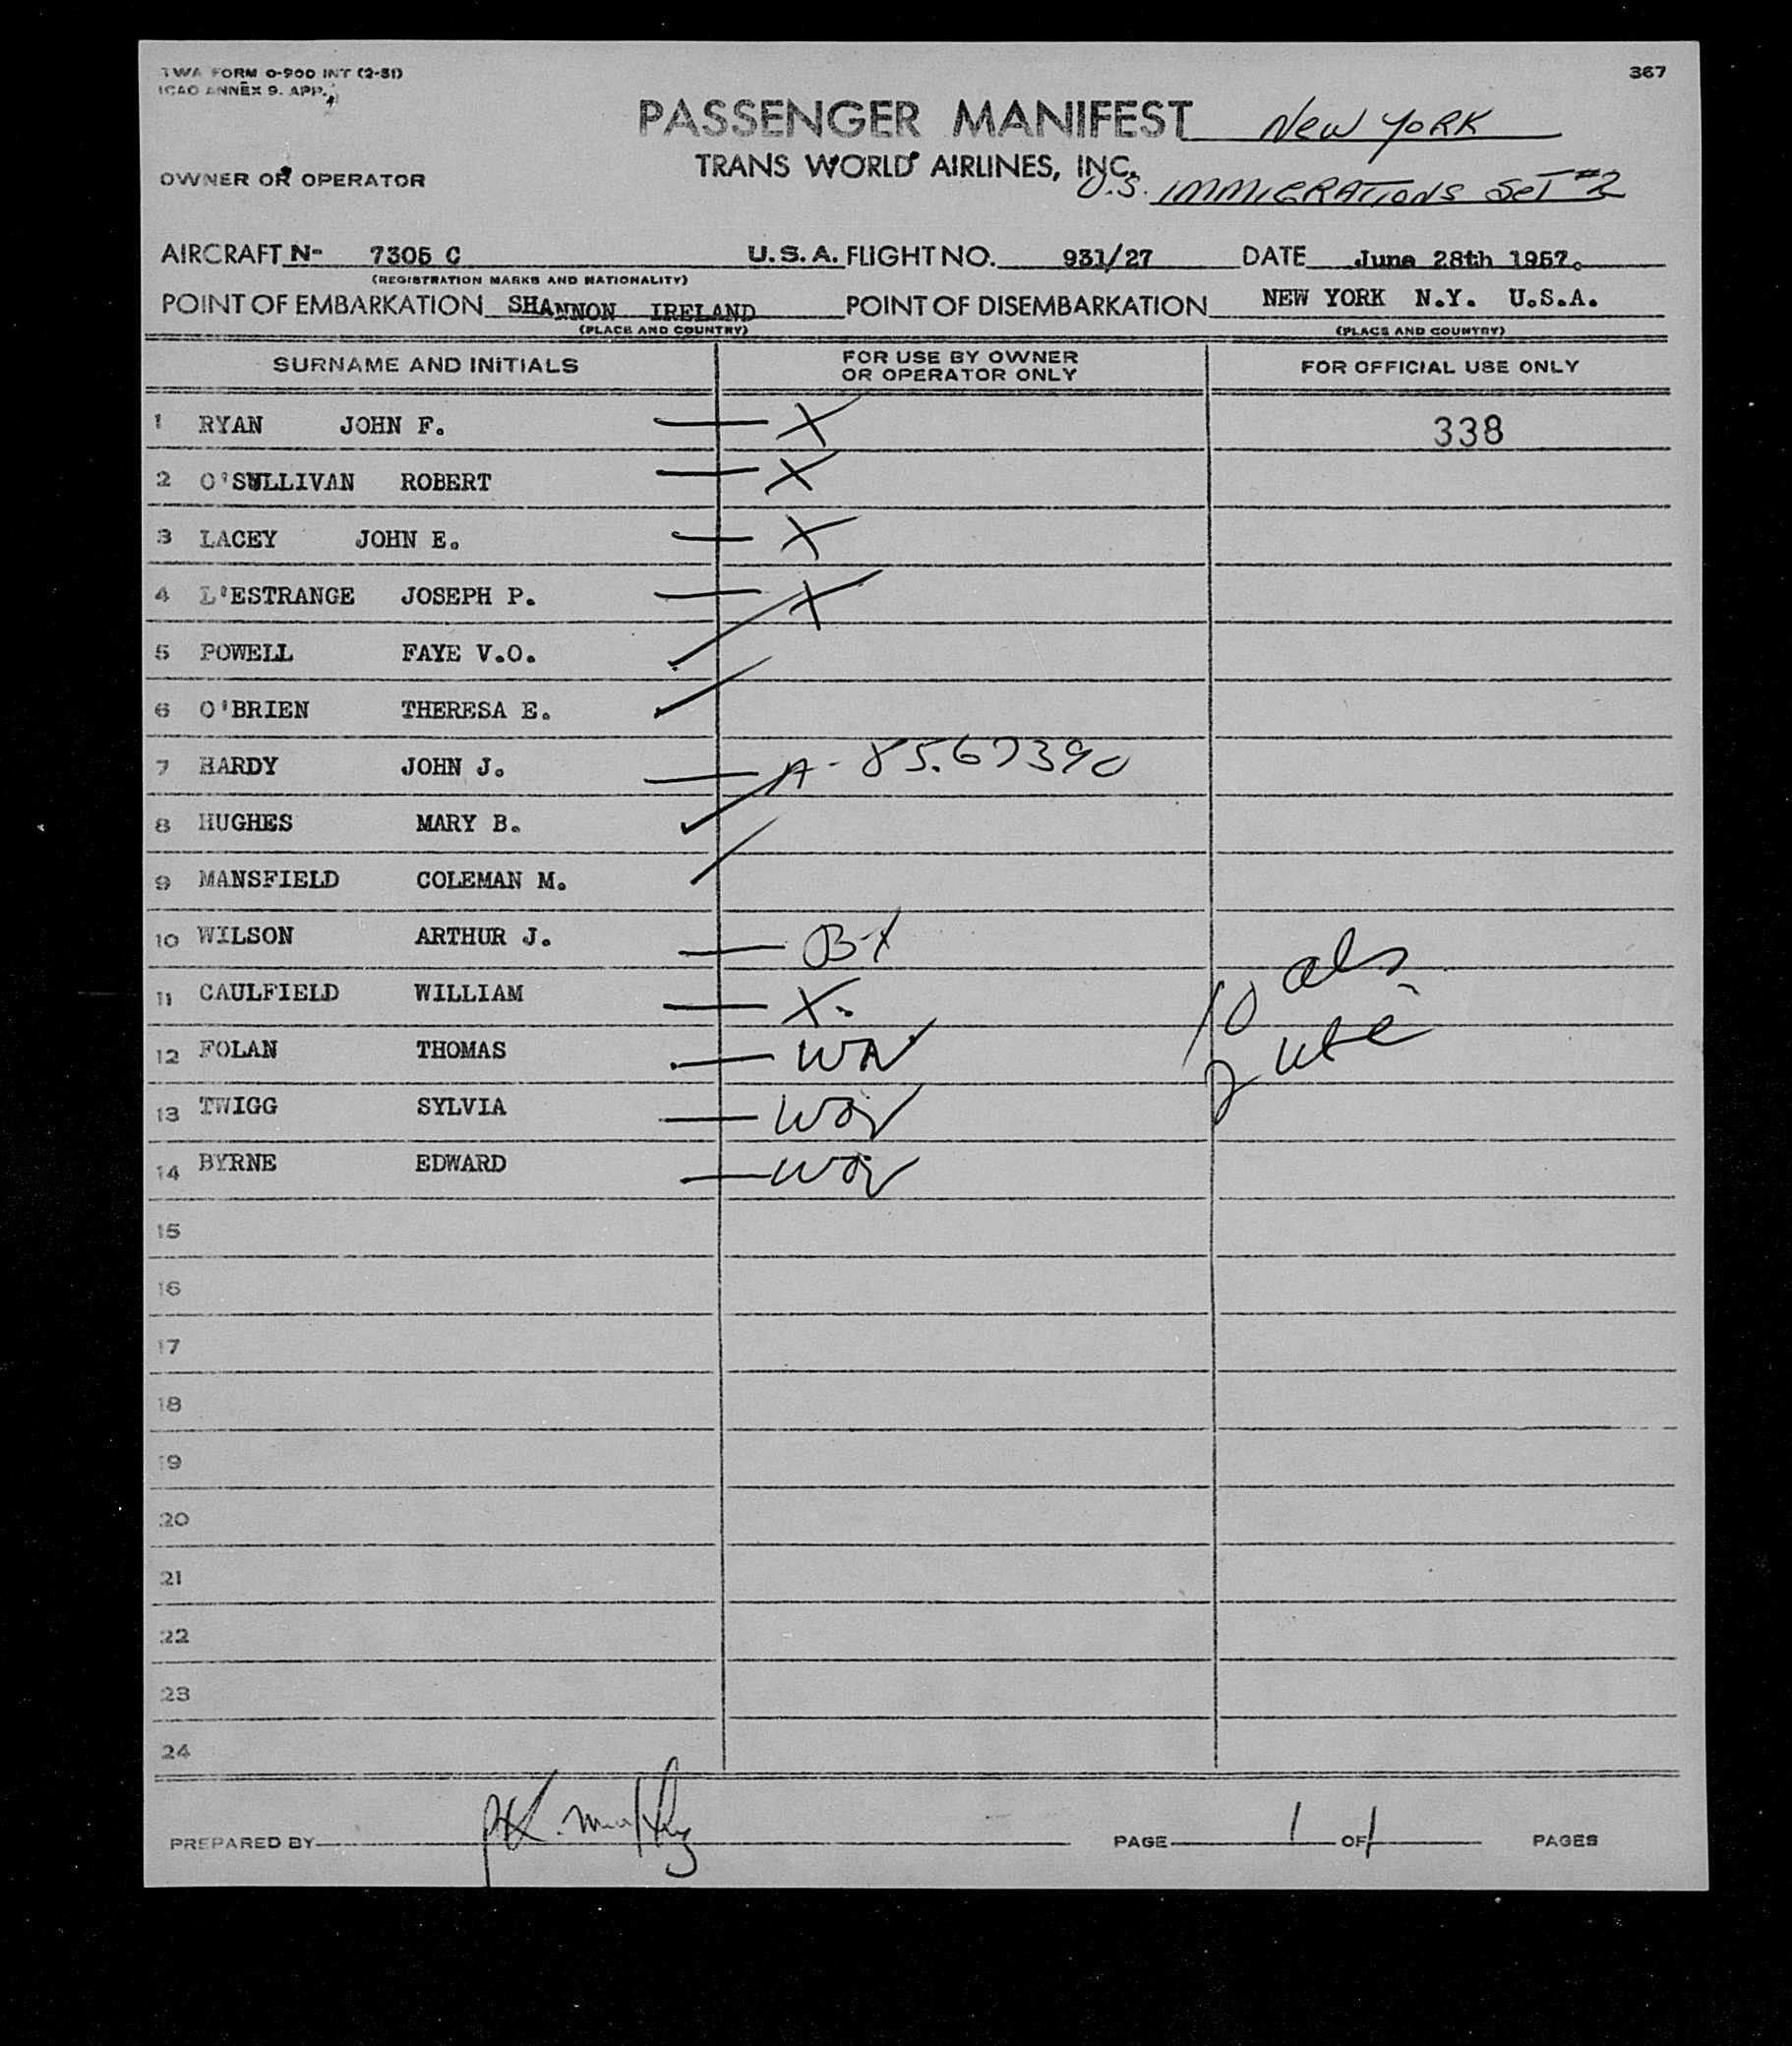 TWA FORM 0-900 INT (2-51)
367
ICAO ANNEX 9. APP. 4
PASSENGER MANIFEST New York
TRANS WORLD AIRLINES, INC.
OWNER OR OPERATOR
U.S. IMMIGRATIONS Set #2
AIRCRAFT N- 7305 C U.S.A. FLIGHT NO. 931/27 DATE June 28th 1957.
(REGISTRATION MARKS AND NATIONALITY)
POINT OF EMBARKATION SHANNON IRELAND POINT OF DISEMBARKATION NEW YORK N.Y. U.S.A.
(PLACE AND COUNTRY) (PLACE AND COUNTRY)
SURNAME AND INITIALS FOR USE BY OWNER OR OPERATOR ONLY FOR OFFICIAL USE ONLY
1 RYAN JOHN F. — X 338
2 O'SULLIVAN ROBERT — X
3 LACEY JOHN E. — X
4 L'ESTRANGE JOSEPH P. — X
5 POWELL FAYE V.O.
6 O'BRIEN THERESA E.
7 HARDY JOHN J. — A-85.67390
8 HUGHES MARY B.
9 MANSFIELD COLEMAN M.
10 WILSON ARTHUR J. — B-X
11 CAULFIELD WILLIAM — X.
12 FOLAN THOMAS —
13 TWIGG SYLVIA —
14 BYRNE EDWARD —
10 als
15
16
17
18
19
20
21
22
23
24
PREPARED BY PAGE 1 OF 1 PAGES